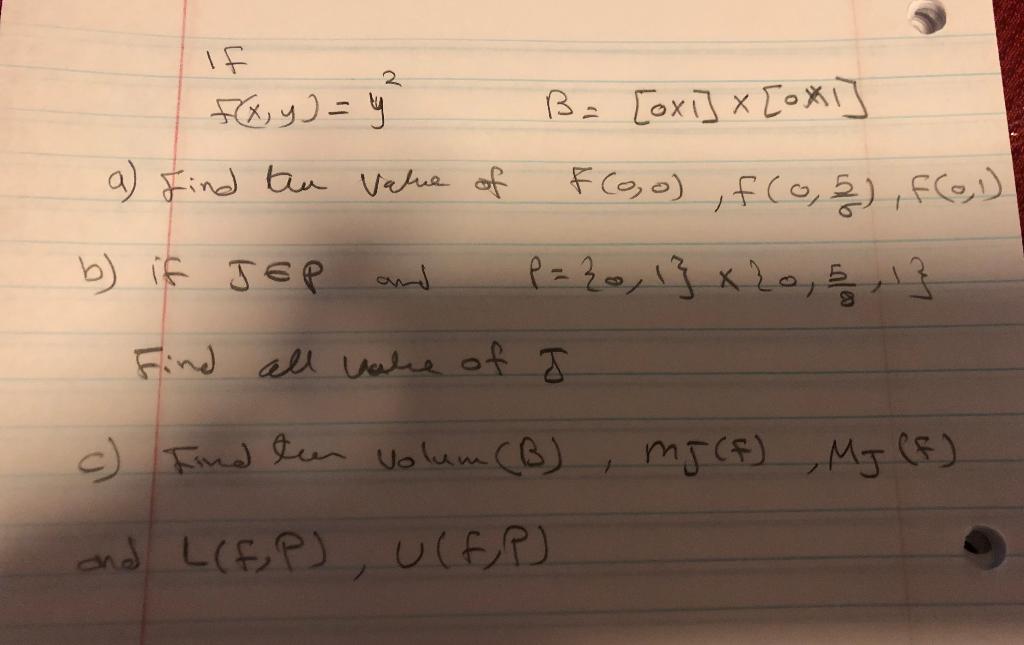 If
f(x,y) = y²    B = [0x1] x [0x1]
a) Find the value of F(0,0), f(0, 5/6), F(0,1)
b) if J ∈ P and P = {0,1} x {0, 5/8, 1}
Find all value of J
c) Find the volum(B), mJ(F), MJ(F)
and L(F,P), U(F,P)